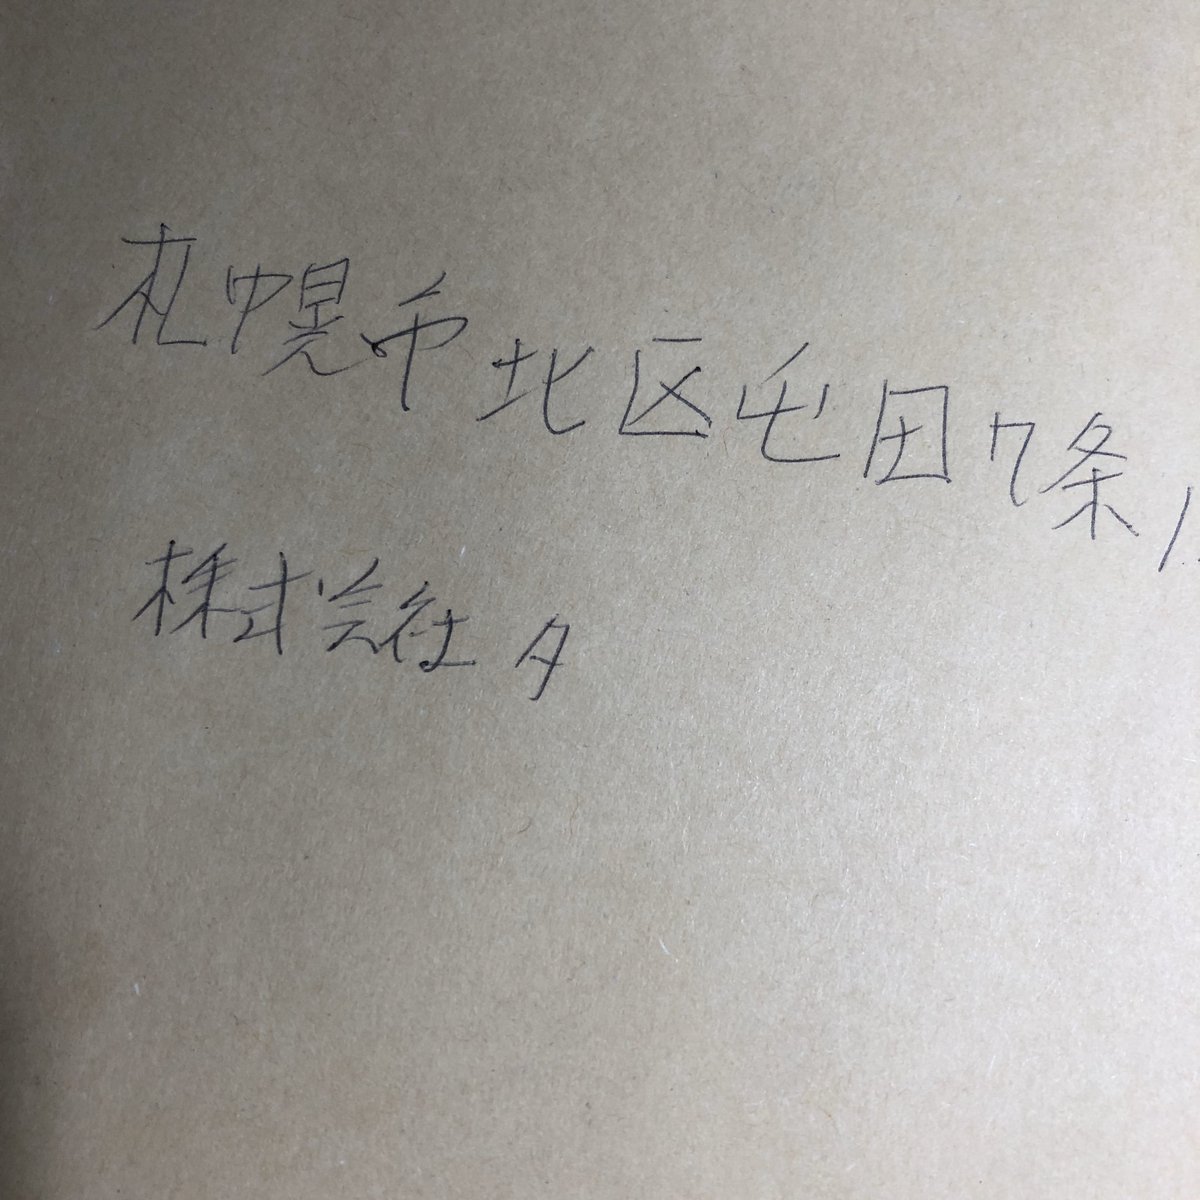 札幌市北区屯田7条1
株式会社タ